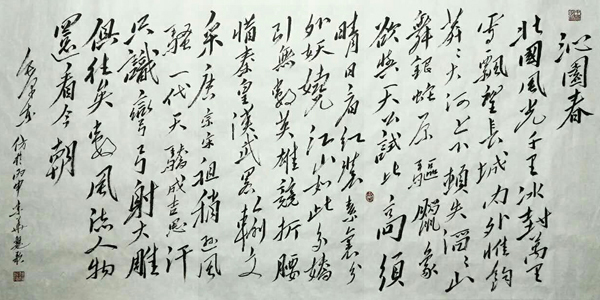 沁園春
北國風光千里冰封萬里
雪飄望長城内外惟餘
莽莽大河上下頓失滔滔山
舞銀蛇原驅臘象
欲與天公試比高須
晴日看红裝素裹分
外妖嬈江山如此多嬌
引無數英雄競折腰
惜秦皇漢武略輸文
采唐宗宋祖稍遜風
騷一代天驕成吉思汗
只識彎弓射大雕
俱往矣數風流人物
還看今朝
仿於丙申